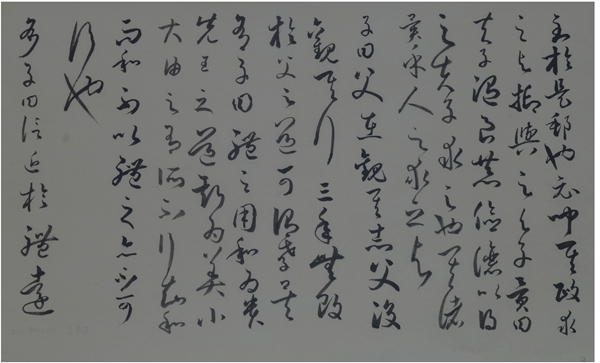 至於是邦也必聞其政求
之与抑與之与子貢曰
夫子温良恭儉讓以得
之夫子求之也其諸
異乎人之求之与
子曰父在觀其志父没
觀其行三年無改
於父之道可謂孝矣
有子曰禮之用和為貴
先王之道斯為美小
大由之有所不行知和
而和不以禮之亦不可
行也
有子曰信近於禮遠